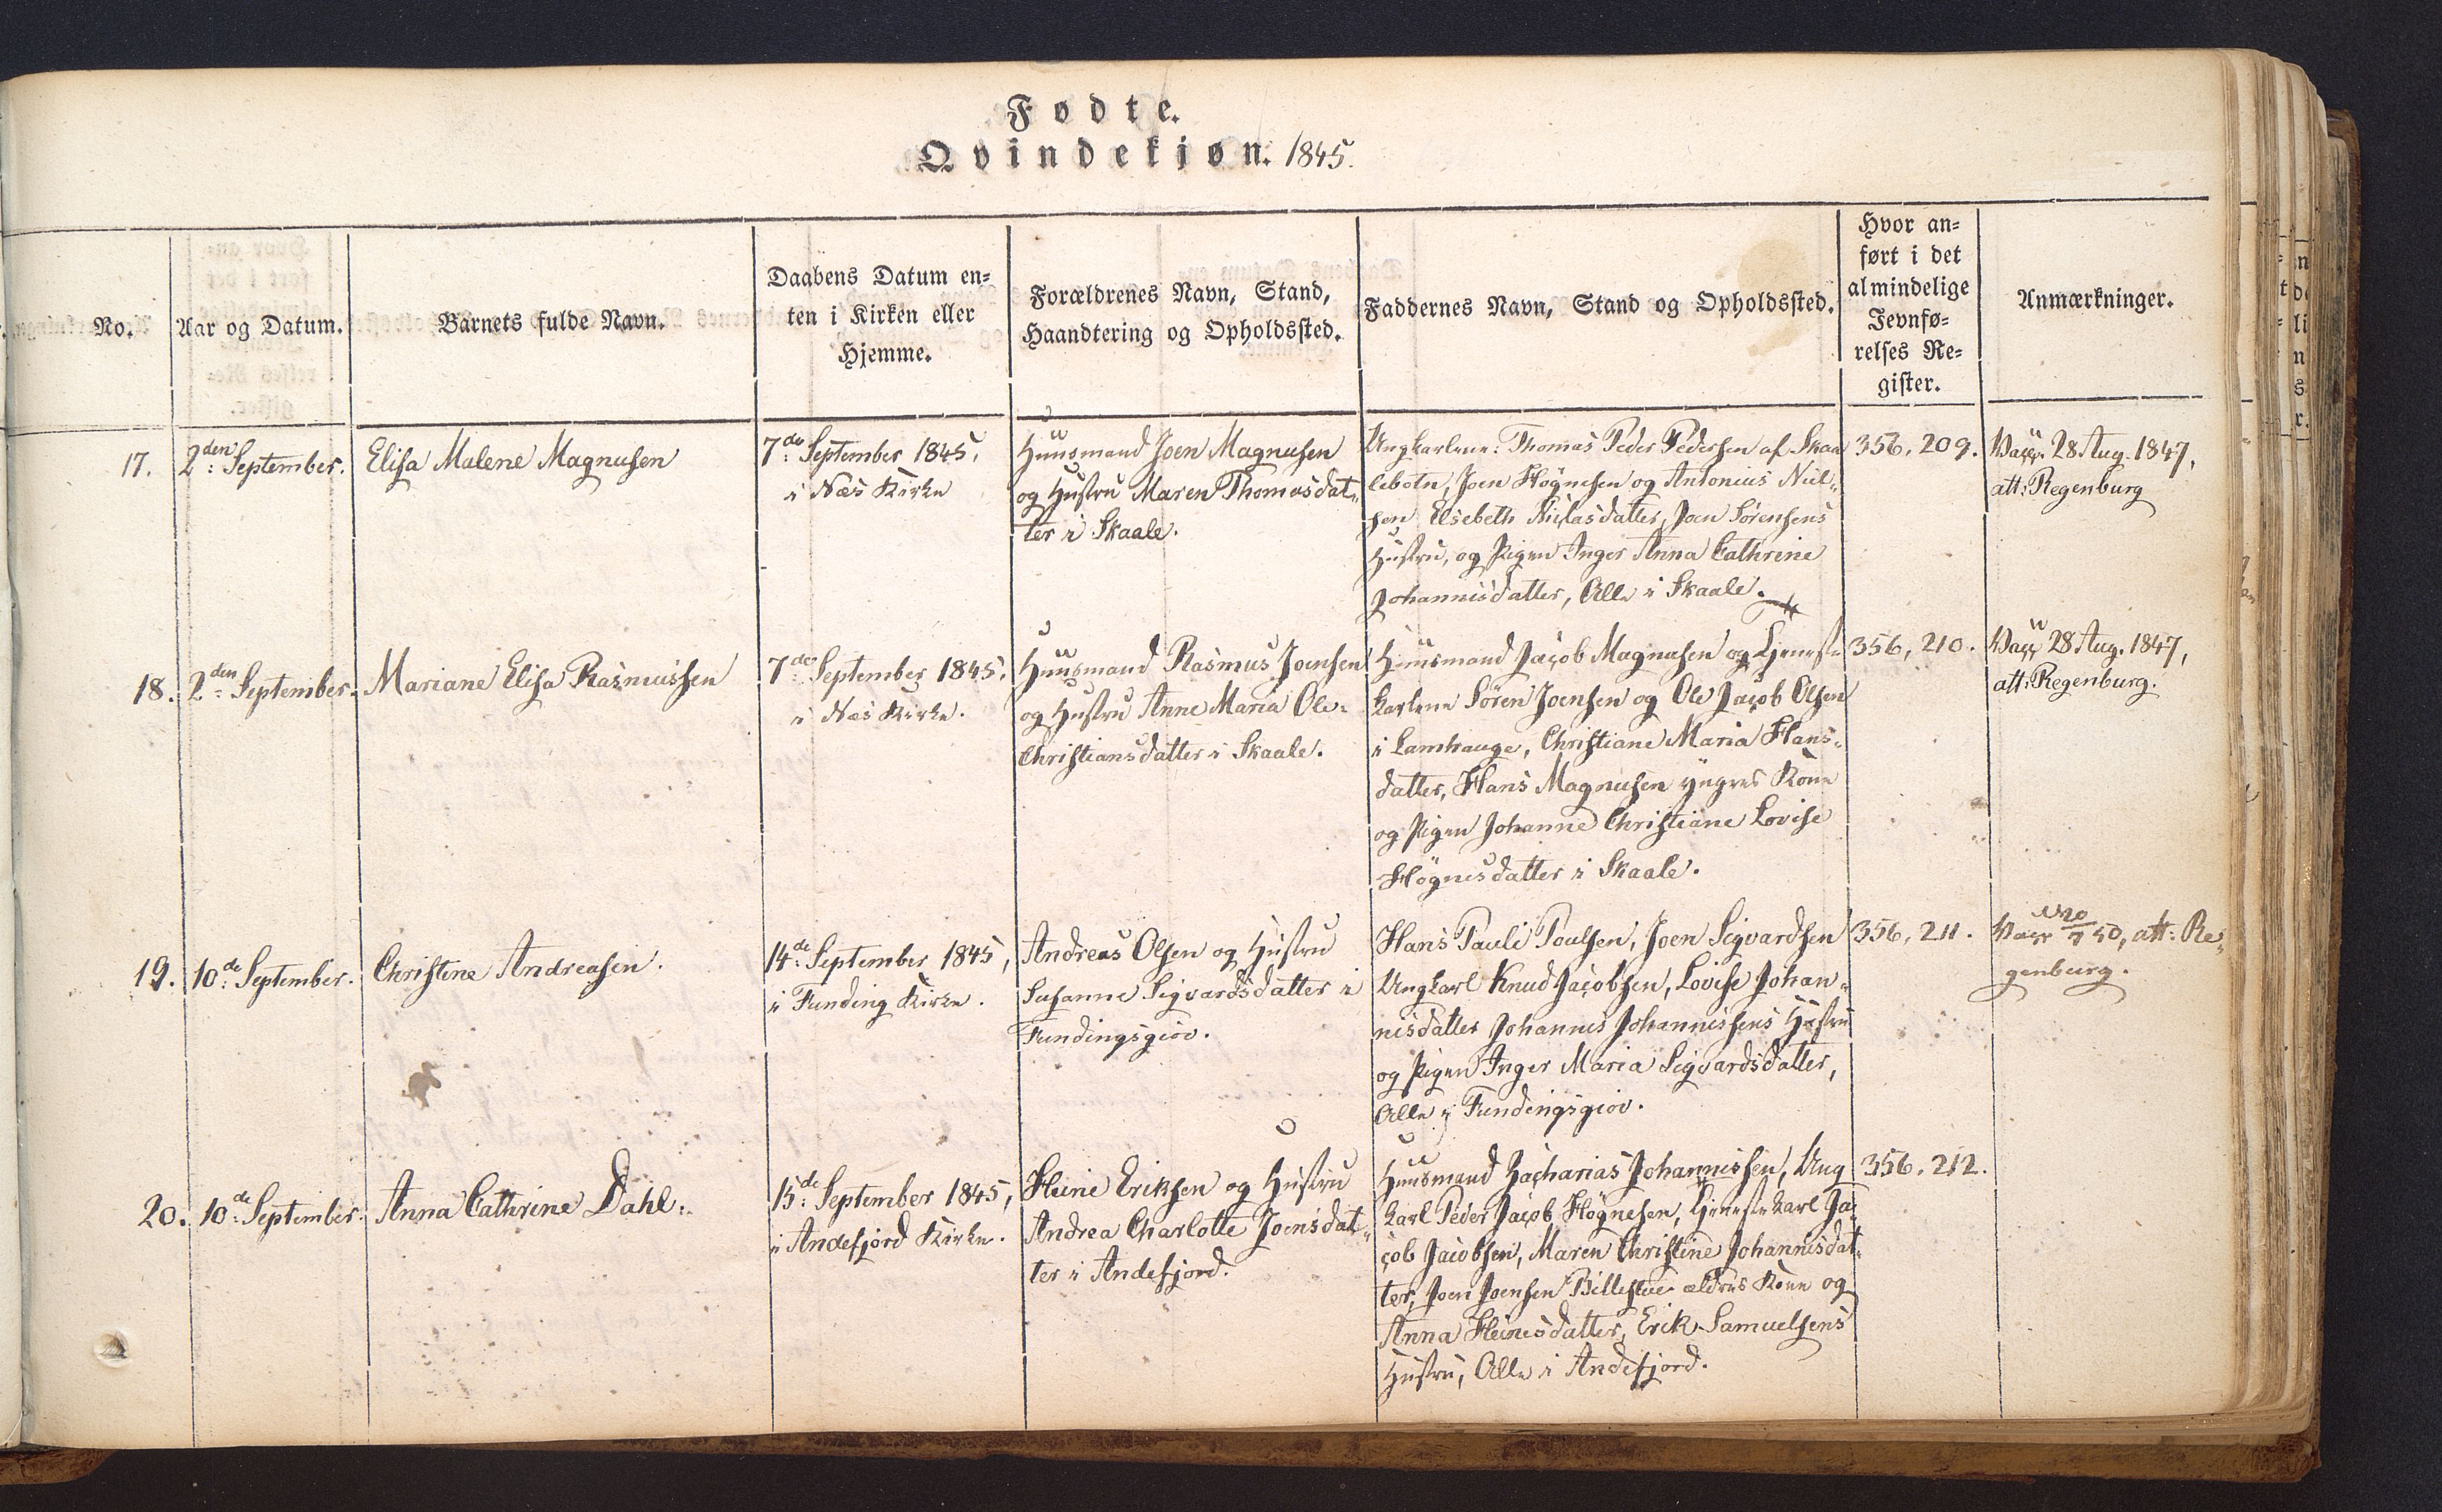 Fødte.
Qvindekjøn. 1845.
No.
Aar og Datum.
Barnets fulde Navn.
Daabens Datum en-
ten i Kirken eller
Hjemme.
Forældrenes Navn, Stand,
Haandtering og Opholdssted.
Faddernes Navn, Stand og Opholdssted.
Hvor an-
ført i det
almindelige
Jevnfø-
relses Re-
gister.
Anmærkninger.
17.
2den September.
Elisa Malene Magnusen
7de September 1845,
i Næs Kirke
Huusmand Joen Magnusen
og Hustru Maren Thomasdat-
ter i Skaale.
Ungkarlene: Thomas Peder Pedersen af Skaa
lebotn, Joen Høgnesen og Antonius Niel-
sen Elsebeth Niclasdatter, Joen Sørensens
Hustru, og Pigen Inger Anna Cathrine
Johannisdatter, Alle i Skaale.
356, 209.
Vacc. 28 Aug. 1847,
att: Regenburg
18.
2den September.
Mariane Elisa Rasmussen
7de September 1845.
i Næs Kirke.
Huusmand Rasmus Joensen
og Hustru Anne Maria Ole-
Christiansdatter i Skaale.
Huusmand Jacob Magnusen og Tjeneste
karlene Søren Joensen og Ole Jacob Olsen
i Lamhauge, Christiane Maria Hans-
datter, Hans Magnusen yngres Kone
og Pigen Johanne Christiane Lovise
Høgnesdatter i Skaale.
356, 210.
Vacc 28 Aug. 1847,
att: Regenburg.
19.
10de September.
Christine Andreasen.
14de September 1845,
i Funding Kirke.
Andreas Olsen og Hustru
Susanne Sigvardsdatter i
Fundingsgiov.
Hans Pauli Poulsen, Joen Sigvardsen
Ungkarl Knud Jacobsen, Lovise Johan-
nisdatter Johannis Johannissens Hustru
og Pigen Inger Maria Sigvardsdatter,
Alle i Fundingsgiov.
356, 211.
Vacc 50, att: Re-
genburg.
20.
10de September.
Anna Cathrine Dahl.
15de September 1845,
i Andefjord Kirke.
Heine Eriksen og Hustru
Andrea Charlotte Joensdat-
ter i Andefjord.
Huusmand Zacharias Johannissen, Ung
karl Peder Jacob Høgnesen, Tjenestekarl Ja-
cob Jacobsen, Maren Christine Johannisdat-
ter, Joen Joensen Billestue ældres Kone og
Anna Heinesdatter, Erik Samuelsens
Hustru, Alle i Andefjord.
356, 212.